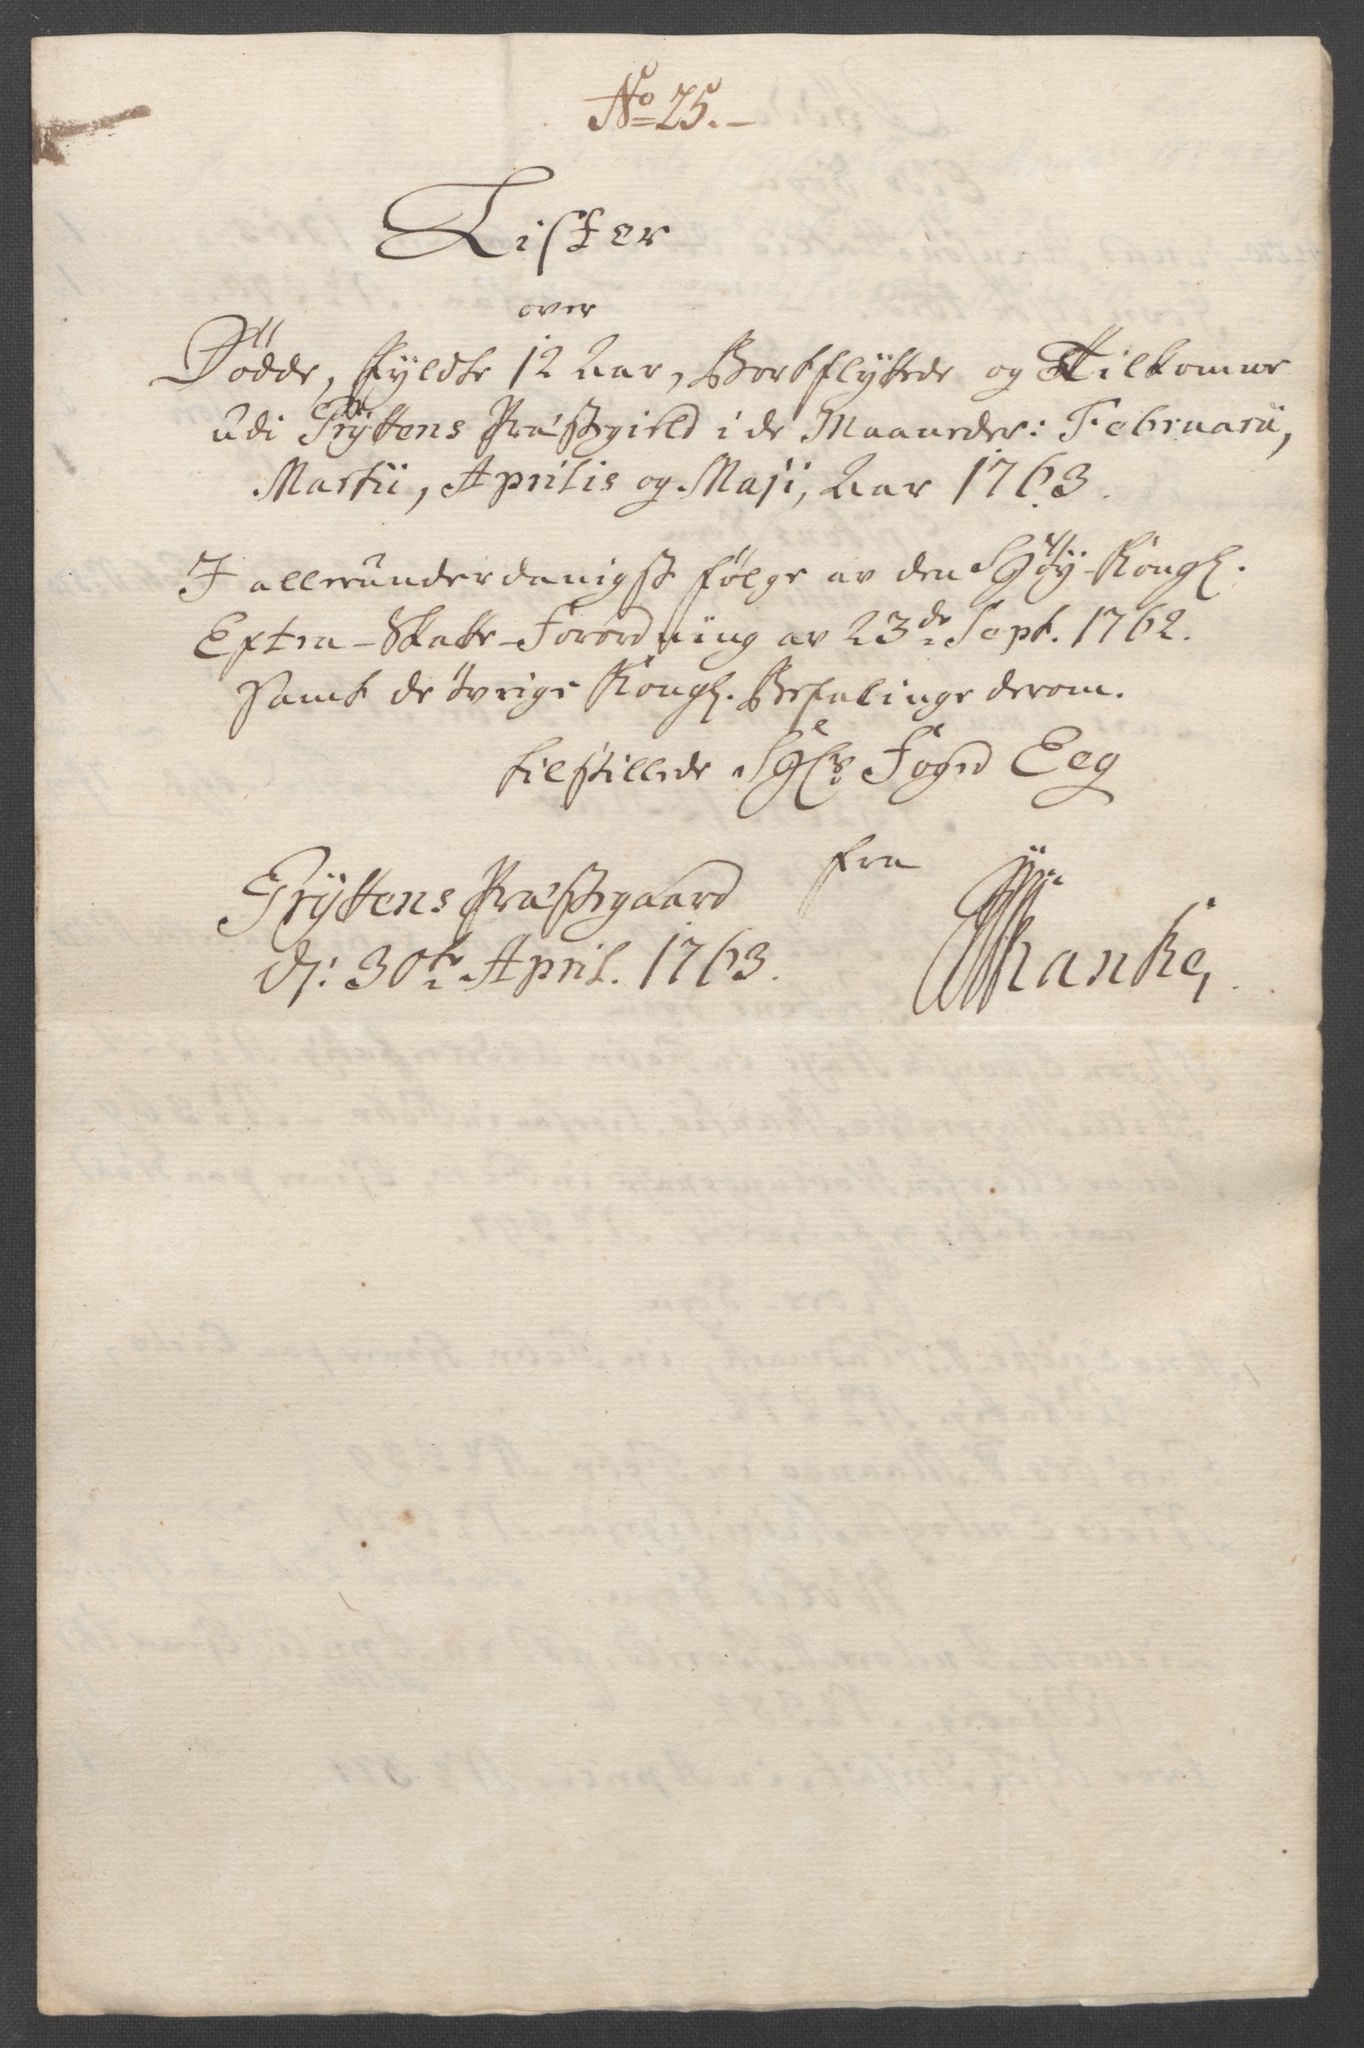 No 25.
Lister
over
Dödde, fyldte 12 Aar, Bortflyttede og Tilkomne
udi Tryttens Præstegield i de Maaneder: Februarii,
Martii, Aprilis og Maji, Aar 1763.
I allerunderdanigst følge av den Høy-Kongl.
Extra-Skatte-Forordning av 23de Sept. 1762.
samt de övrige Kongl. Befalinge derom.
tilstillede Sr Foged Eeg
fra
Tryttens Præstegaard
d: 30te April. 1763.